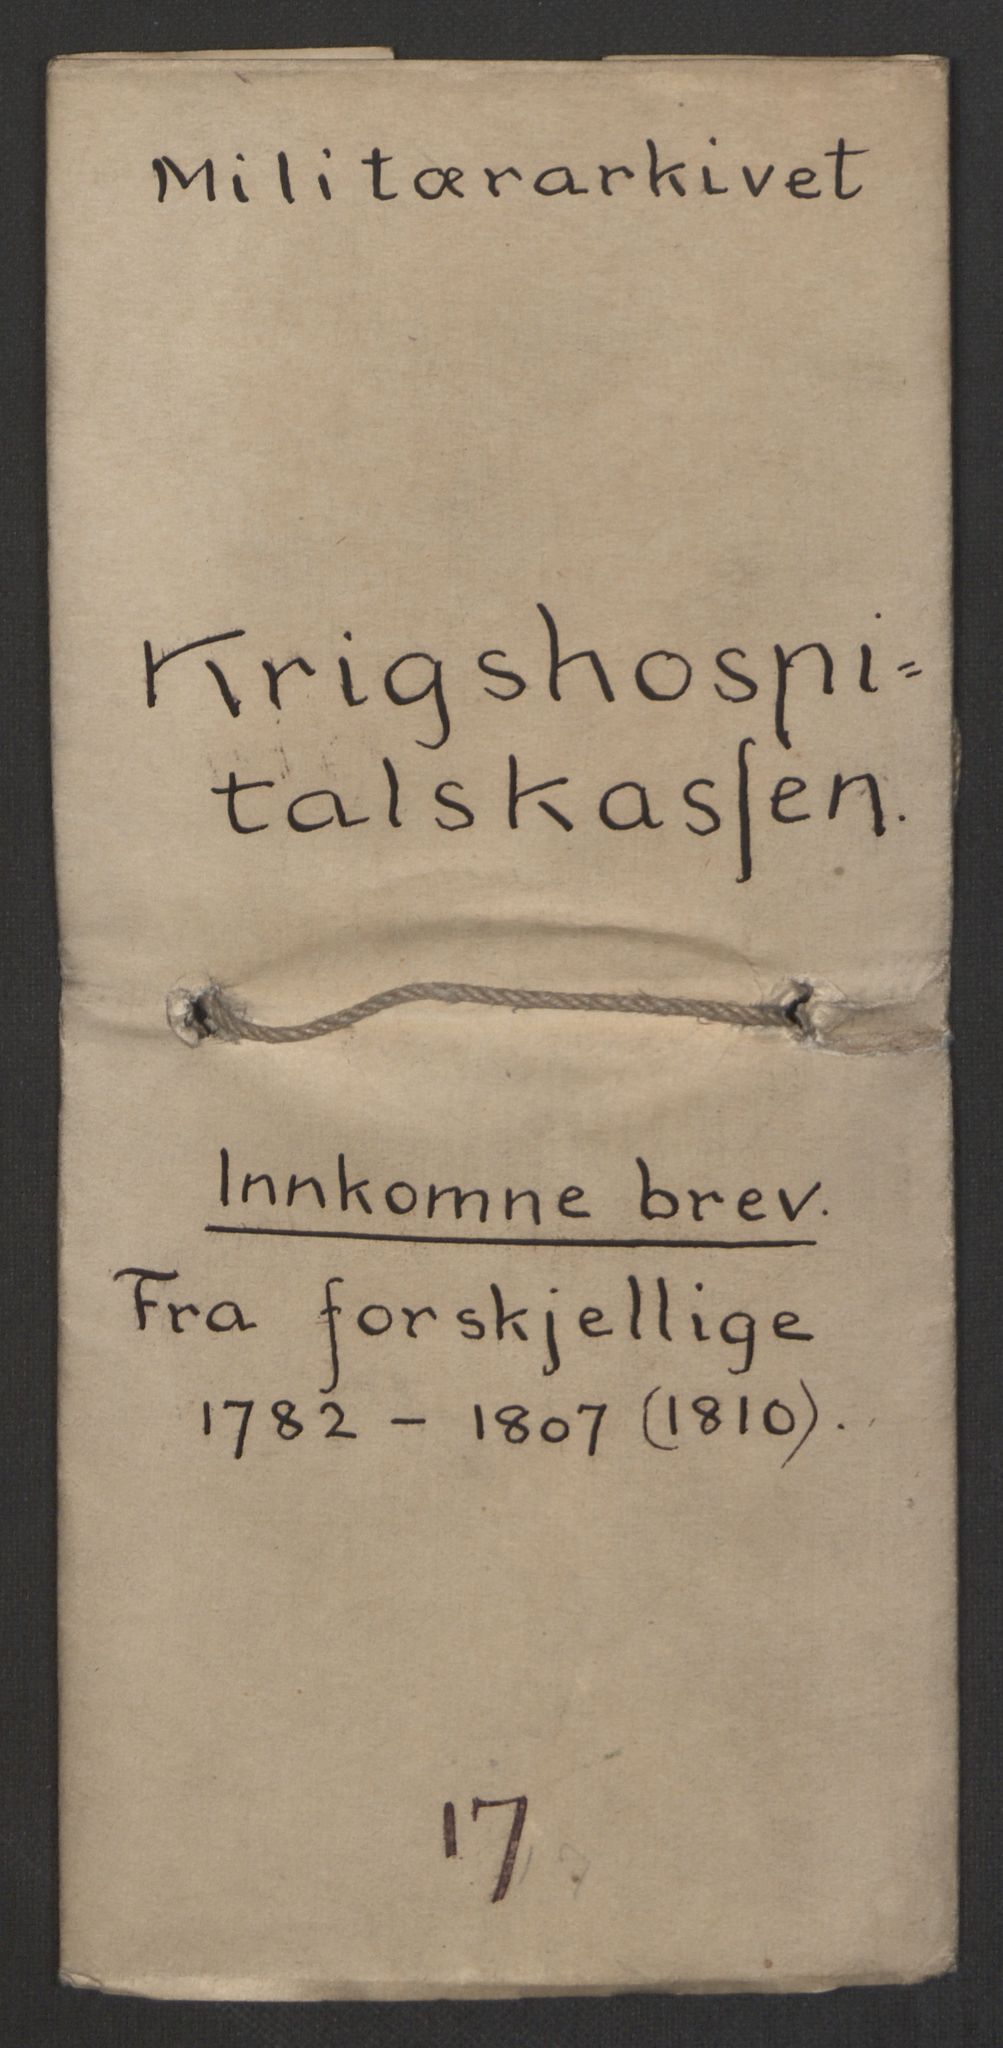 Militærarkivet
Krigshospi=
talskasſen.
Innkomne brev.
Fra forskjellige
1782 - 1807 (1810).
17